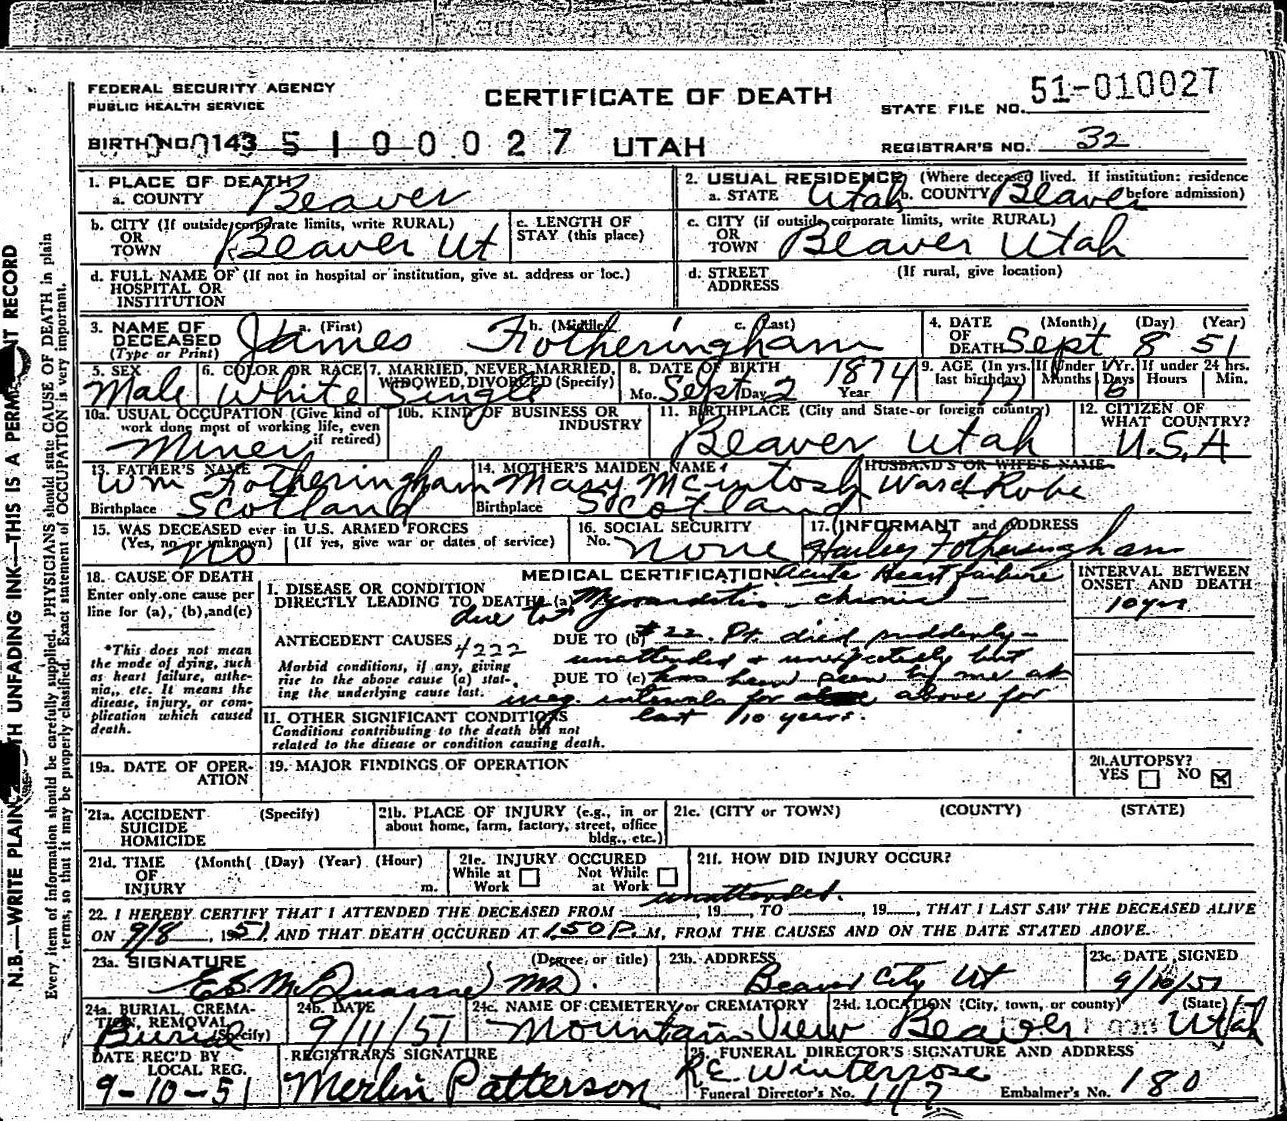 FEDERAL SECURITY AGENCY
PUBLIC HEALTH SERVICE
CERTIFICATE OF DEATH
STATE FILE NO. 51-010027
BIRTH NO. 143 5 1 0 0 0 2 7 UTAH
REGISTRAR'S NO. 32
1. PLACE OF DEATH
a. COUNTY Beaver
2. USUAL RESIDENCE (Where deceased lived. If institution: residence before admission)
a. STATE Utah b. COUNTY Beaver
b. CITY (If outside corporate limits, write RURAL) OR TOWN Beaver Ut
c. LENGTH OF STAY (this place)
c. CITY (if outside corporate limits, write RURAL) OR TOWN Beaver Utah
d. FULL NAME OF (If not in hospital or institution, give st. address or loc.) HOSPITAL OR INSTITUTION
d. STREET ADDRESS (If rural, give location)
3. NAME OF DECEASED (Type or Print) a. (First) b. (Middle) c. (Last)
James Fotheringham
4. DATE OF DEATH (Month) (Day) (Year)
Sept 8 51
5. SEX Male
6. COLOR OR RACE White
7. MARRIED, NEVER MARRIED, WIDOWED, DIVORCED (Specify) Single
8. DATE OF BIRTH Mo. Sept Day 2 Year 1874
9. AGE (In yrs. last birthday) 77 If Under 1 Yr. Months Days 6 If under 24 hrs. Hours Min.
10a. USUAL OCCUPATION (Give kind of work done most of working life, even if retired) Miner
10b. KIND OF BUSINESS OR INDUSTRY
11. BIRTHPLACE (City and State or foreign country) Beaver Utah
12. CITIZEN OF WHAT COUNTRY? U.S.A
13. FATHER'S NAME Wm Fotheringham
Birthplace Scotland
14. MOTHER'S MAIDEN NAME Mary McIntosh
Birthplace Scotland
HUSBAND'S OR WIFE'S NAME
Ward Robe
15. WAS DECEASED ever in U.S. ARMED FORCES
(Yes, no, or unknown) (If yes, give war or dates of service)
No
16. SOCIAL SECURITY No. none
17. INFORMANT and ADDRESS
Harley Fotheringham
18. CAUSE OF DEATH
Enter only one cause per line for (a), (b), and (c)
*This does not mean the mode of dying, such as heart failure, asthenia, etc. It means the disease, injury, or complication which caused death.
MEDICAL CERTIFICATION Acute Heart failure
I. DISEASE OR CONDITION DIRECTLY LEADING TO DEATH (a) Myocarditis - chronic -
due to
ANTECEDENT CAUSES 4222 DUE TO (b) #22. Pt. died suddenly -
Morbid conditions, if any, giving rise to the above cause (a) stating the underlying cause last.
unattended & unexpectedly but
DUE TO (c) has been seen by me at
irreg. intervals for above for
last 10 years.
INTERVAL BETWEEN ONSET AND DEATH
10 yrs.
II. OTHER SIGNIFICANT CONDITIONS
Conditions contributing to the death but not related to the disease or condition causing death.
19a. DATE OF OPERATION
19. MAJOR FINDINGS OF OPERATION
20. AUTOPSY?
YES NO
21a. ACCIDENT SUICIDE HOMICIDE (Specify)
21b. PLACE OF INJURY (e.g., in or about home, farm, factory, street, office bldg., etc.)
21c. (CITY or TOWN) (COUNTY) (STATE)
21d. TIME OF INJURY (Month) (Day) (Year) (Hour) m.
21e. INJURY OCCURED
While at Work Not While at Work
21f. HOW DID INJURY OCCUR?
unattended.
22. I HEREBY CERTIFY THAT I ATTENDED THE DECEASED FROM , 19 , TO , 19 , THAT I LAST SAW THE DECEASED ALIVE
ON 9/8, 1951, AND THAT DEATH OCCURED AT 1:50 P. M, FROM THE CAUSES AND ON THE DATE STATED ABOVE.
23a. SIGNATURE (Degree, or title)
MD.
23b. ADDRESS
Beaver City Ut
23c. DATE SIGNED
9/10/51
24a. BURIAL, CREMATION, REMOVAL (Specify) Burial
24b. DATE 9/11/51
24c. NAME OF CEMETERY or CREMATORY Mountain View
24d. LOCATION (City, town, or county) (State)
Beaver Utah
DATE REC'D BY LOCAL REG.
9-10-51
REGISTRAR'S SIGNATURE
Merlin Patterson
25. FUNERAL DIRECTOR'S SIGNATURE AND ADDRESS
R E Winterrose
Funeral Director's No. 147 Embalmer's No. 180
Every item of information should be carefully supplied. PHYSICIANS should state CAUSE OF DEATH in plain
terms, so that it may be properly classified. Exact statement of OCCUPATION is very important.